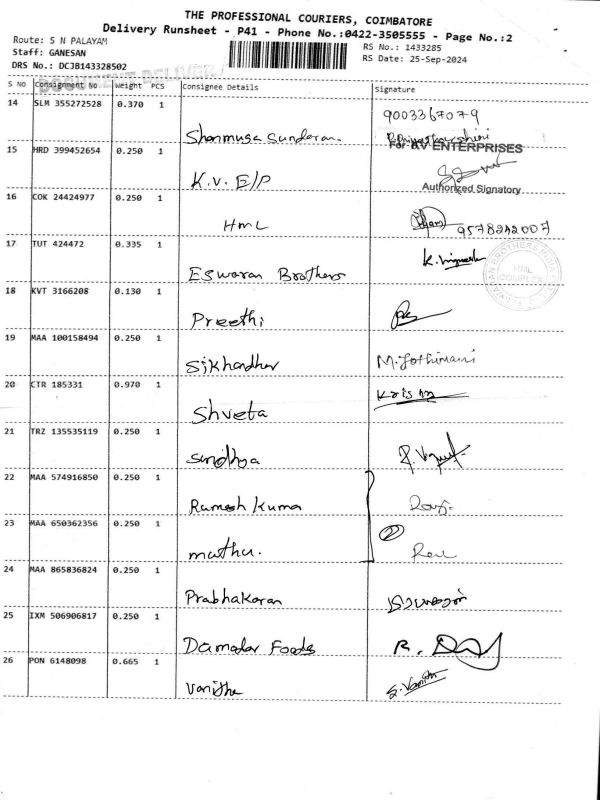 THE PROFESSIONAL COURIERS, COIMBATORE
Delivery Runsheet - P41 - Phone No.:0422-3505555 - Page No.:2
Route: S N PALAYAM
Staff: GANESAN
DRS No.: DCJB143328502
RS No.: 1433285
RS Date: 25-Sep-2024
S No Consignment No Weight PCS Consignee Details Signature
14 SLM 355272528 0.370 1 Shanmuga Sundaran. 9003367079
For KV ENTERPRISES
15 HRD 399452654 0.250 1 K.V. E/P
Authorized Signatory
16 COK 24424977 0.250 1 HML 9578242007
17 TUT 424472 0.335 1 Eswaran Brothers K. Vignesh
18 KVT 3166208 0.130 1 Preethi
19 MAA 100158494 0.250 1 Sikhandhar M. Jothimani
20 CTR 185331 0.970 1 Shveta
21 TRZ 135535119 0.250 1 Sandhya
22 MAA 574916850 0.250 1 Ramesh Kuma
23 MAA 650362356 0.250 1 mathu. 2
24 MAA 865836824 0.250 1 Prabhakaran
25 IXM 506906817 0.250 1 Damodar Foods
26 PON 6148098 0.665 1 Vanitha S. Vanitha